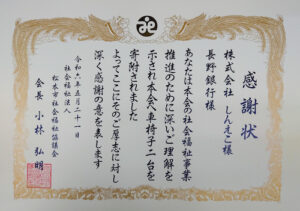 感謝状
株式会社 しんえこ様
長野銀行様
あなたは本会の社会福祉事業
推進のために深いご理解を
示され本会へ車椅子二台を
寄附されました
よってここにそのご厚志に対し
深く感謝の意を表します
令和六年五月三十一日
社会福祉法人
松本市社会福祉協議会
会長 小林弘明